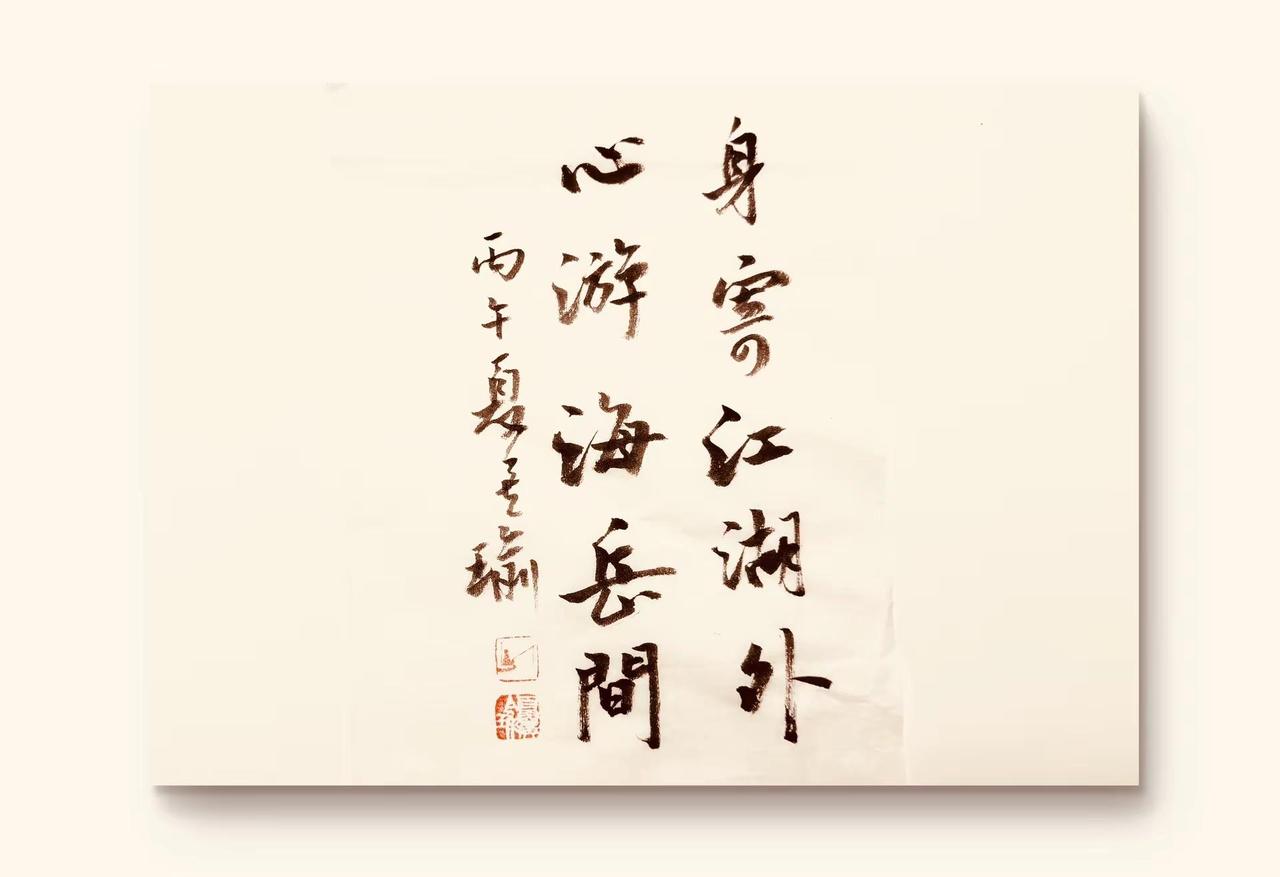 身寄江湖外
心游海岳間
丙午夏孟瑜